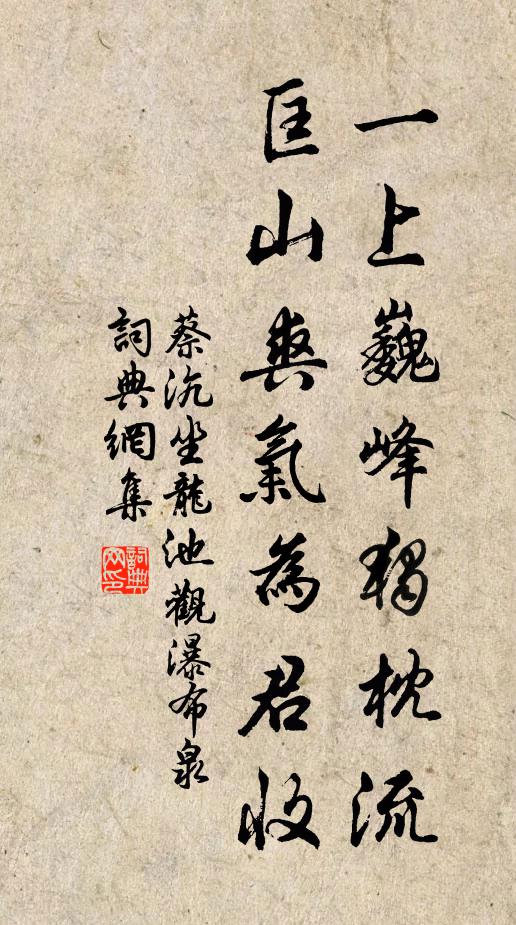 一上巍峰獨枕流
匡山爽氣為君收
蔡沉坐龍池觀瀑布泉
詞典網集
詞典網印